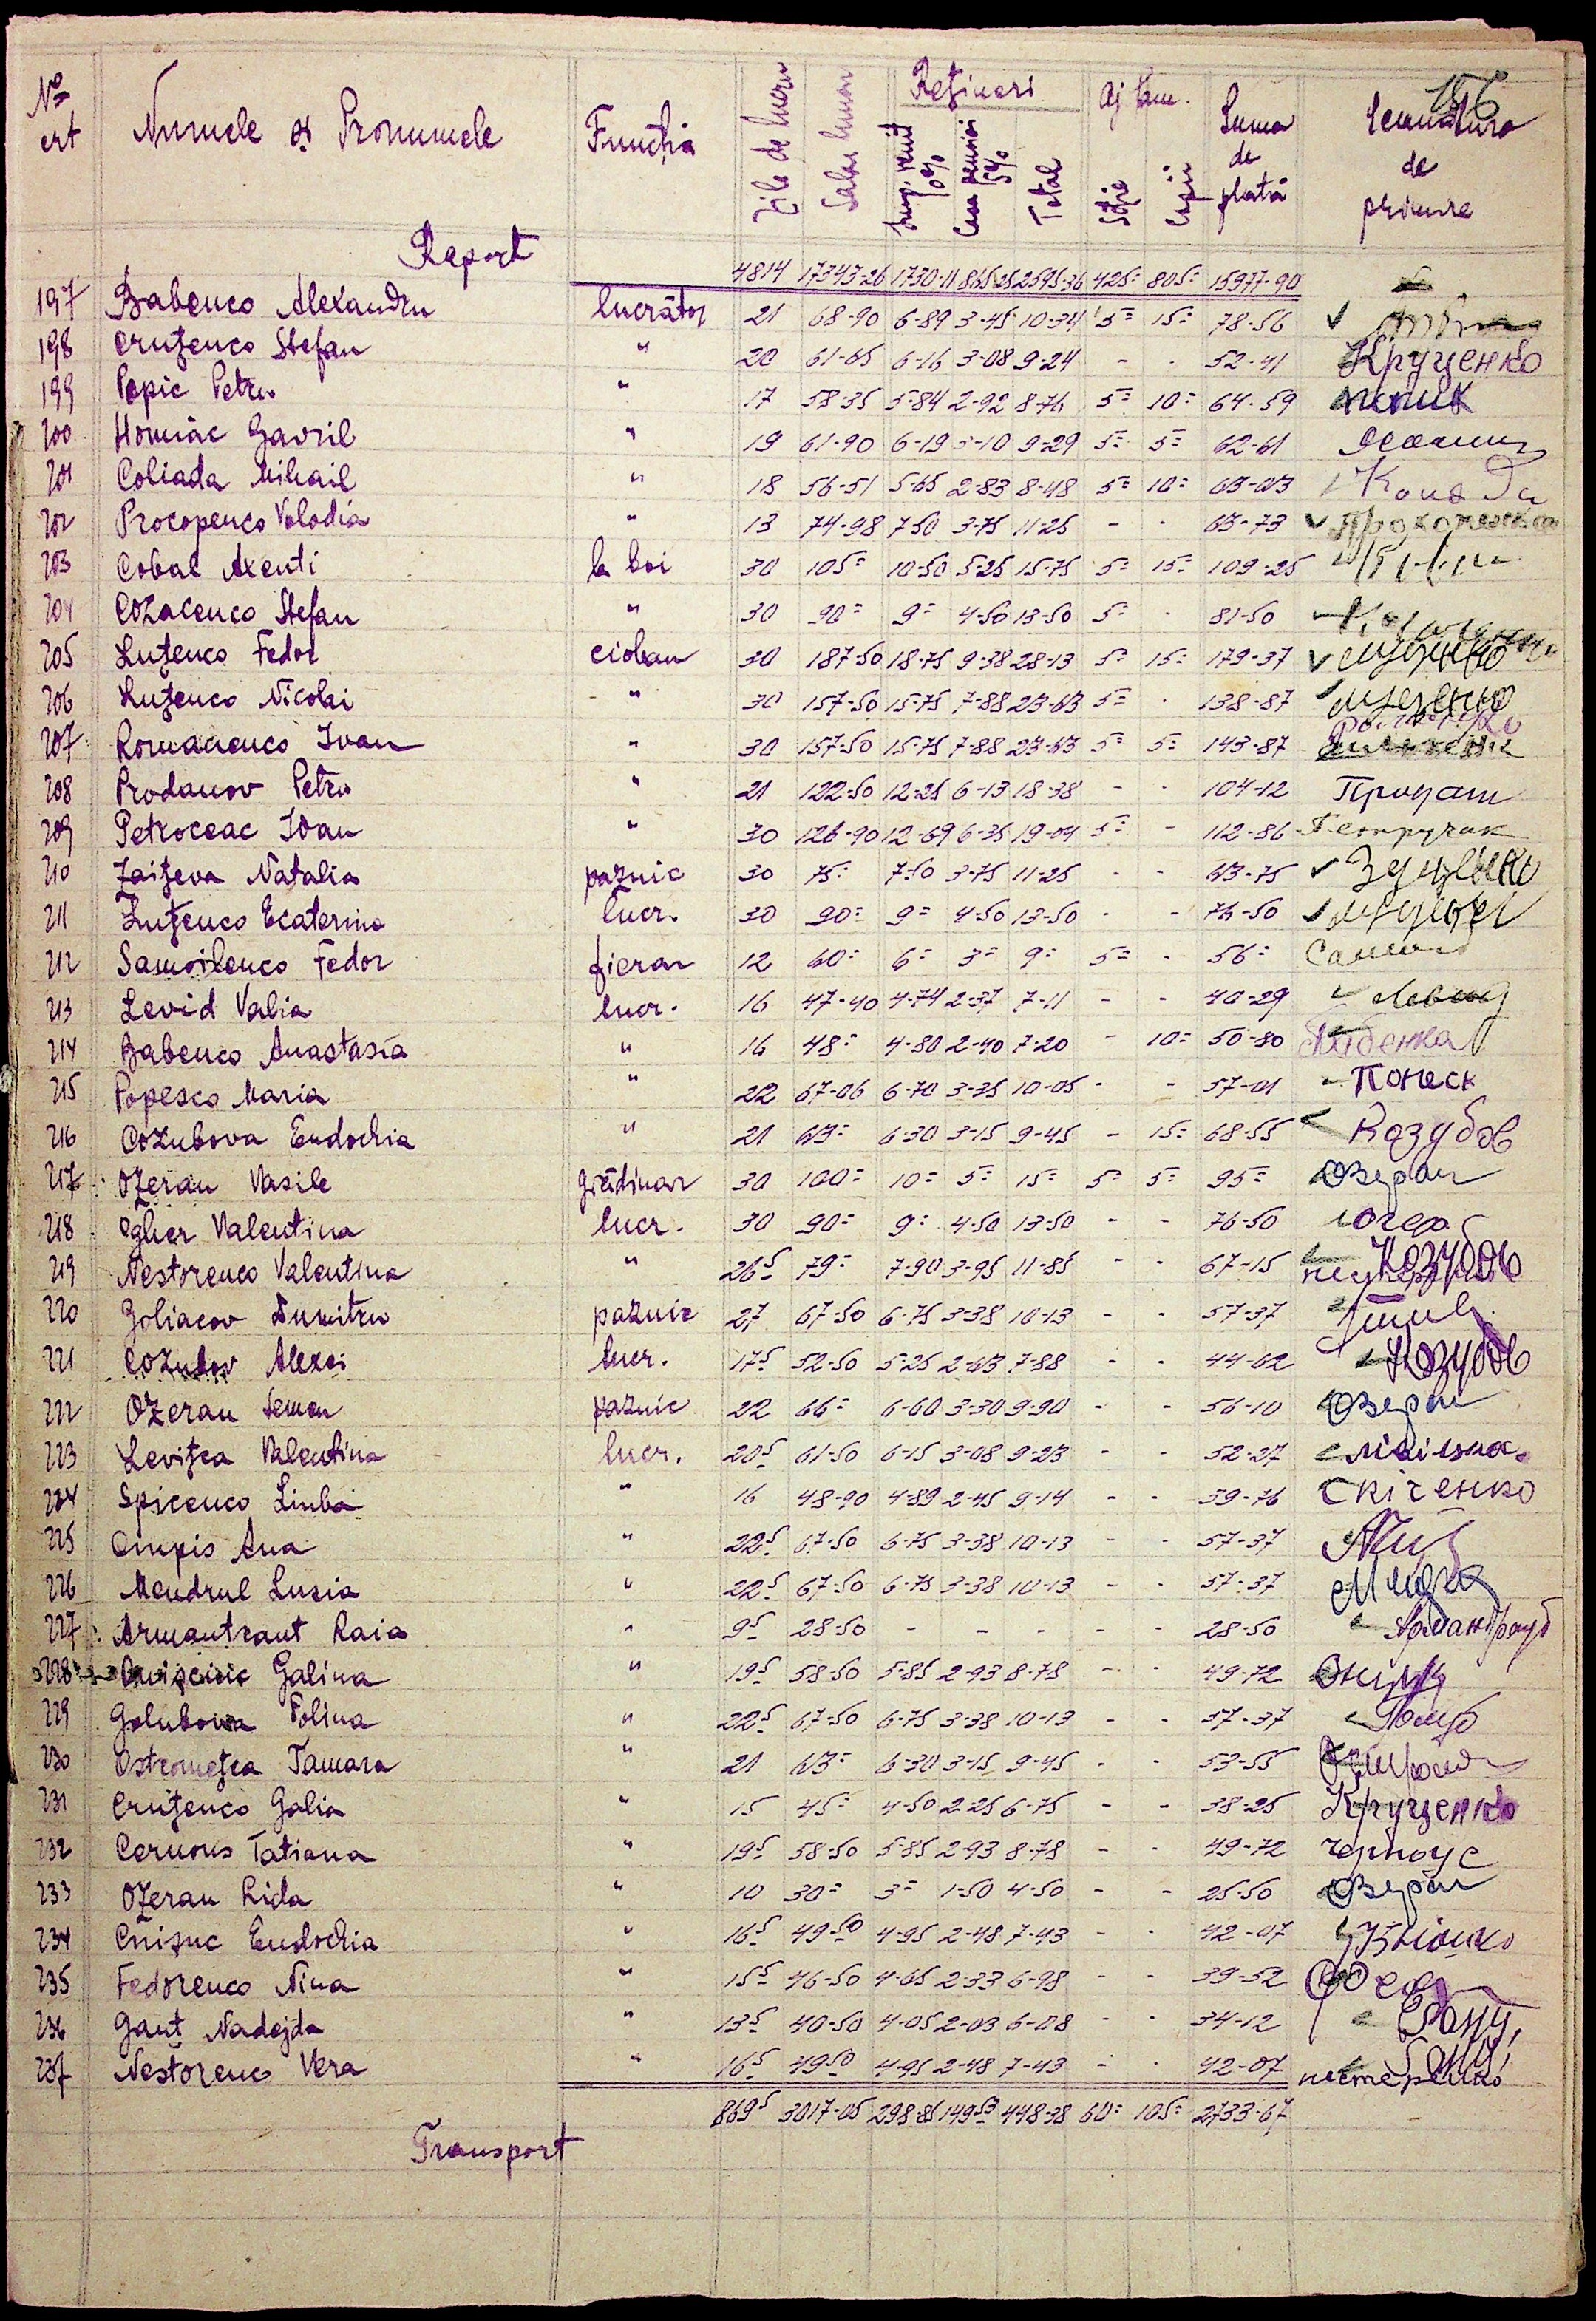 156
Nº crt Numele și Pronumele Funcția Zile de lucru Salar lunar Rețineri Imp. venit 10% Casa pensiei 5% Total Aj fam. Soție Copii Suma de plată Semnătura de primire
Raport 4814 17343-26 1730-11 865-25 2595-36 425= 805= 15977-90
197 Babenco Alexandru lucrător 21 68-90 6-89 3-45 10-34 5= 15= 78-56
198 Cruțenco Stefan " 20 61-65 6-16 3-08 9-24 - - 52-41 Круценко
199 Popic Petru " 17 58-35 5-84 2-92 8-76 5= 10= 64-59 попик
200 Homiac Gavril " 19 61-90 6-19 3-10 9-29 5= 5= 62-61
201 Coliada Mihail " 18 56-51 5-65 2-83 8-48 5= 10= 63-03 Коляда
202 Procopenco Volodia " 13 74-98 7-50 3-75 11-25 - - 63-73
203 Cobal Axenti la boi 30 105= 10-50 5-25 15-75 5= 15= 109-25
204 Cozacenco Stefan " 30 90= 9= 4-50 13-50 5= - 81-50
205 Luțenco Fedor cioban 30 187-50 18-75 9-38 28-13 5= 15= 179-37 луценко
206 Luțenco Nicolai " 30 157-50 15-75 7-88 23-63 5= - 138-87 луценко
207 Romanenco Ivan " 30 157-50 15-75 7-88 23-63 5= 5= 143-87
208 Prodanov Petru " 21 122-50 12-25 6-13 18-38 - - 104-12 Продан
209 Petroceac Ivan " 30 126-90 12-69 6-35 19-04 5= - 112-86 Петручак
210 Zaițeva Natalia paznic 30 75= 7-50 3-75 11-25 - - 63-75
211 Luțenco Ecaterina lucr. 30 90= 9= 4-50 13-50 - - 76-50
212 Samoilenco Fedor fierar 12 60= 6= 3= 9= 5= - 56=
213 Levid Valia lucr. 16 47-40 4-74 2-37 7-11 - - 40-29 Левид
214 Babenco Anastasia " 16 48= 4-80 2-40 7-20 - 10= 50-80
215 Popesco Maria " 22 67-06 6-70 3-35 10-05 - - 57-01 Попеск
216 Cozubova Eudochia " 21 63= 6-30 3-15 9-45 - 15= 68-55 Козубов
217 Ozeran Vasile grădinar 30 100= 10= 5= 15= 5= 5= 95= Озеран
218 Eglier Valentina lucr. 30 90= 9= 4-50 13-50 - - 76-50
219 Nestorenco Valentina " 26 5 79= 7-90 3-95 11-85 - - 67-15
220 Goliacov Dumitru paznic 27 67-50 6-75 3-38 10-13 - - 57-37
221 Cozubov Alexei lucr. 17 5 52-50 5-25 2-63 7-88 - - 44-62 Козубов
222 Ozeran Semen paznic 22 66= 6-60 3-30 9-90 - - 56-10 Озеран
223 Levițca Valentina lucr. 20 5 61-50 6-15 3-08 9-23 - - 52-27
224 Spicenco Liuba " 16 48-90 4-89 2-45 9-14 - - 39-76 Спіченко
225 Cnipis Ana " 22 5 67-50 6-75 3-38 10-13 - - 57-37
226 Mendrul Lusia " 22 5 67-50 6-75 3-38 10-13 - - 57-37
227 Armantraut Raia " 9 5 28-50 - - - - - 28-50
228 Galina " 19 5 58-50 5-85 2-93 8-78 - - 49-72
229 Golubova Polina " 22 5 67-50 6-75 3-38 10-13 - - 57-37
230 Ostromețca Tamara " 21 63= 6-30 3-15 9-45 - - 53-55
231 Cruțenco Galia " 15 45= 4-50 2-25 6-75 - - 38-25 Круценко
232 Cernous Tatiana " 19 5 58-50 5-85 2-93 8-78 - - 49-72 чорноус
233 Ozeran Lida " 10 30= 3= 1-50 4-50 - - 25-50 Озеран
234 Cnișuc Eudochia " 16 5 49-50 4-95 2-48 7-43 - - 42-07
235 Fedorenco Nina " 15 5 46-50 4-65 2-33 6-98 - - 39-52
236 Ganț Nadejda " 13 5 40-50 4-05 2-03 6-08 - - 34-12
237 Nestorenco Vera " 16 5 49-50 4-95 2-48 7-43 - - 42-07 нестеренко
869 5 3017-05 298-85 149-53 448-38 60= 105= 2733-67
Transport